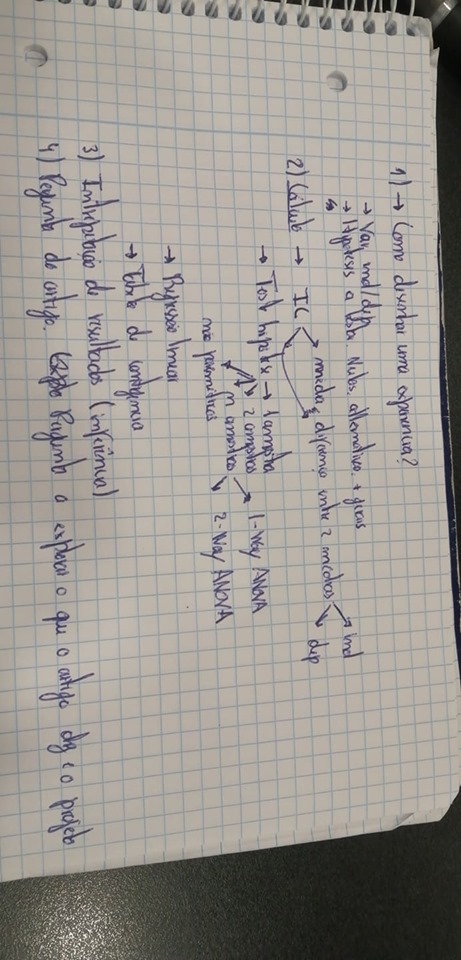 1) → Como desenhar uma experiência?
→ Var ind/dep
→ Hypotesis a testa. Nulas, alternativo, + gerais
2) Cálculo → IC media, diferença entre 2 médias ind
dep
→ Test hipótx → 1 amostra
2 amostras 1-Way ANOVA
m amostras 2-Way ANOVA
não paramétricas
→ Regressão linear
→ Tabela de contigencia
3) Intrepetação de resultados (inferência)
4) Pergunta do artigo. Pergunta a explorar o que o artigo diz e o projeto